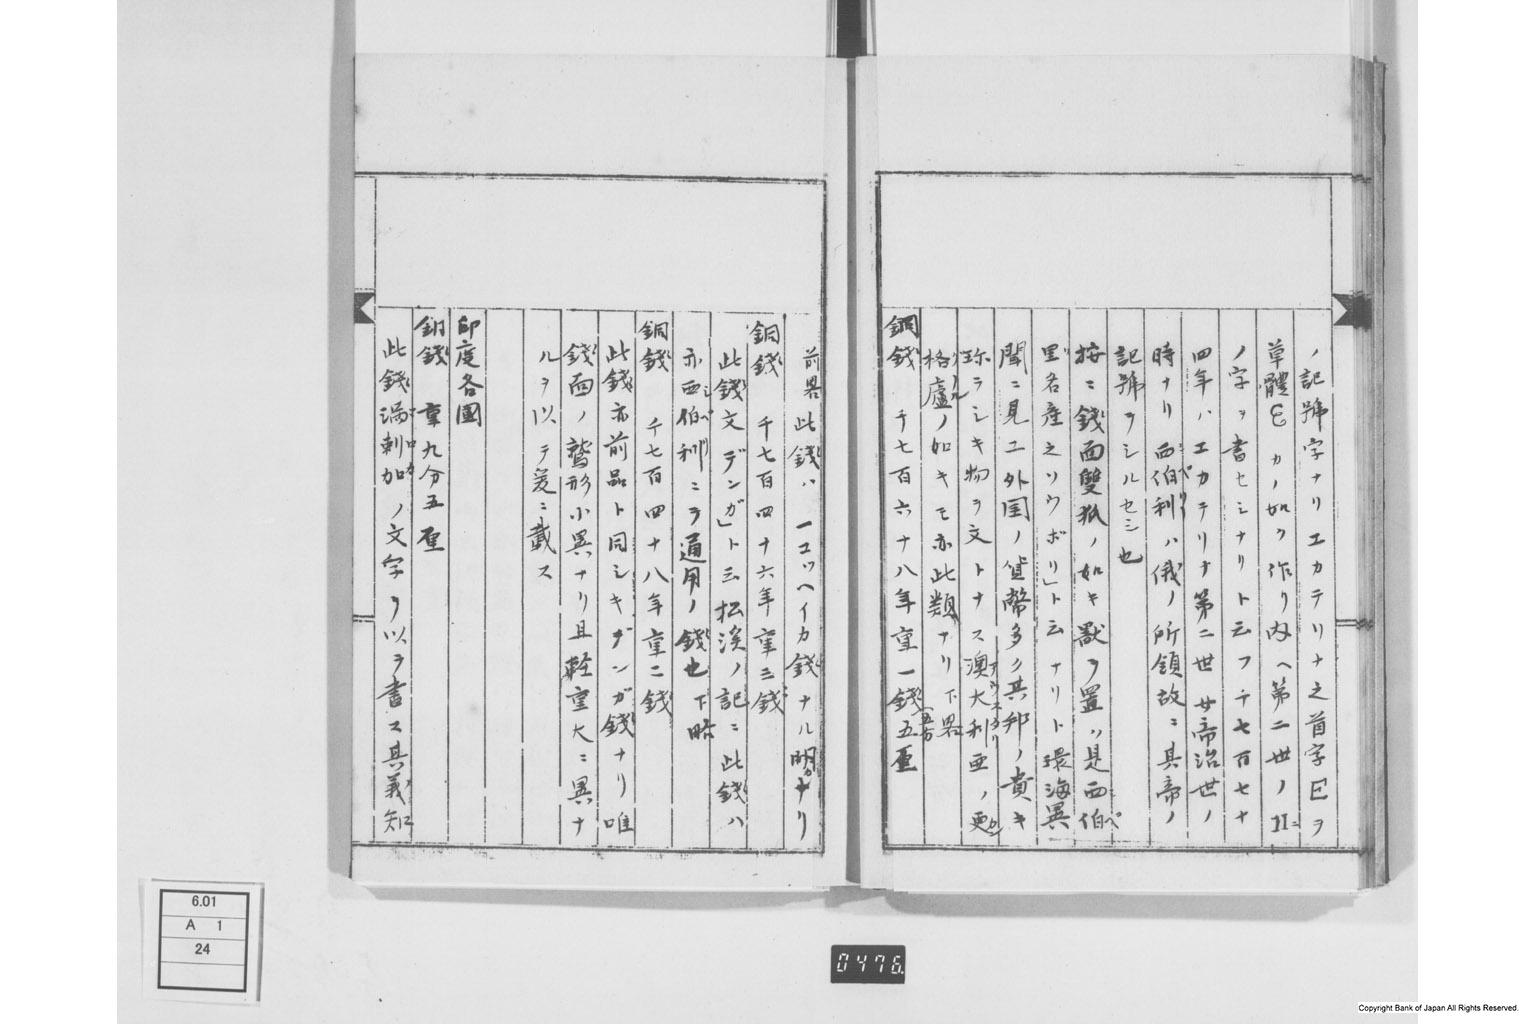 ノ記號字ナリエカテリナ之首字Eヲ
草體ℰカノ如ク作リ内ヘ第二世ノII
ノ字ヲ書セシナリト云フ千七百七十
四年ハエカテリナ第二世女帝治世ノ
時ナリ西伯利ハ俄ノ所領故ニ其帝ノ
記號ヲシルセシ也
按ニ錢面雙狐ノ如キ獸ヲ置ハ是西伯
里名産之ソウボリ」ト云ナリト環海異
聞ニ見エ外国ノ貨幣多ク其邦ノ貴キ
珎ラシキ物ヲ文トナス澳大利亜ノ
格廬ノ如キモ亦此類ナリ下畧
銅錢 千七百六十八年重一錢五分五厘
前畧此錢ハ一コッヘイカ錢ナル明カナリ
銅錢 千七百四十六年重三錢
此錢文デンガ」ト云松溪ノ記ニ此錢ハ
亦西伯利ニテ通用ノ錢也下略
銅錢 千七百四十八年重二錢
此錢亦前品ト同シキデンガ錢ナリ唯
錢面ノ鷲形小異ナリ且軽重大ニ異ナ
ルヲ以テ爰ニ載ス
印度各國
銅錢 重九分五厘
此錢満剌加ノ文字ヲ以テ書ス其義知
6.01
A 1
24
0476
Copyright Bank of Japan All Rights Reserved.